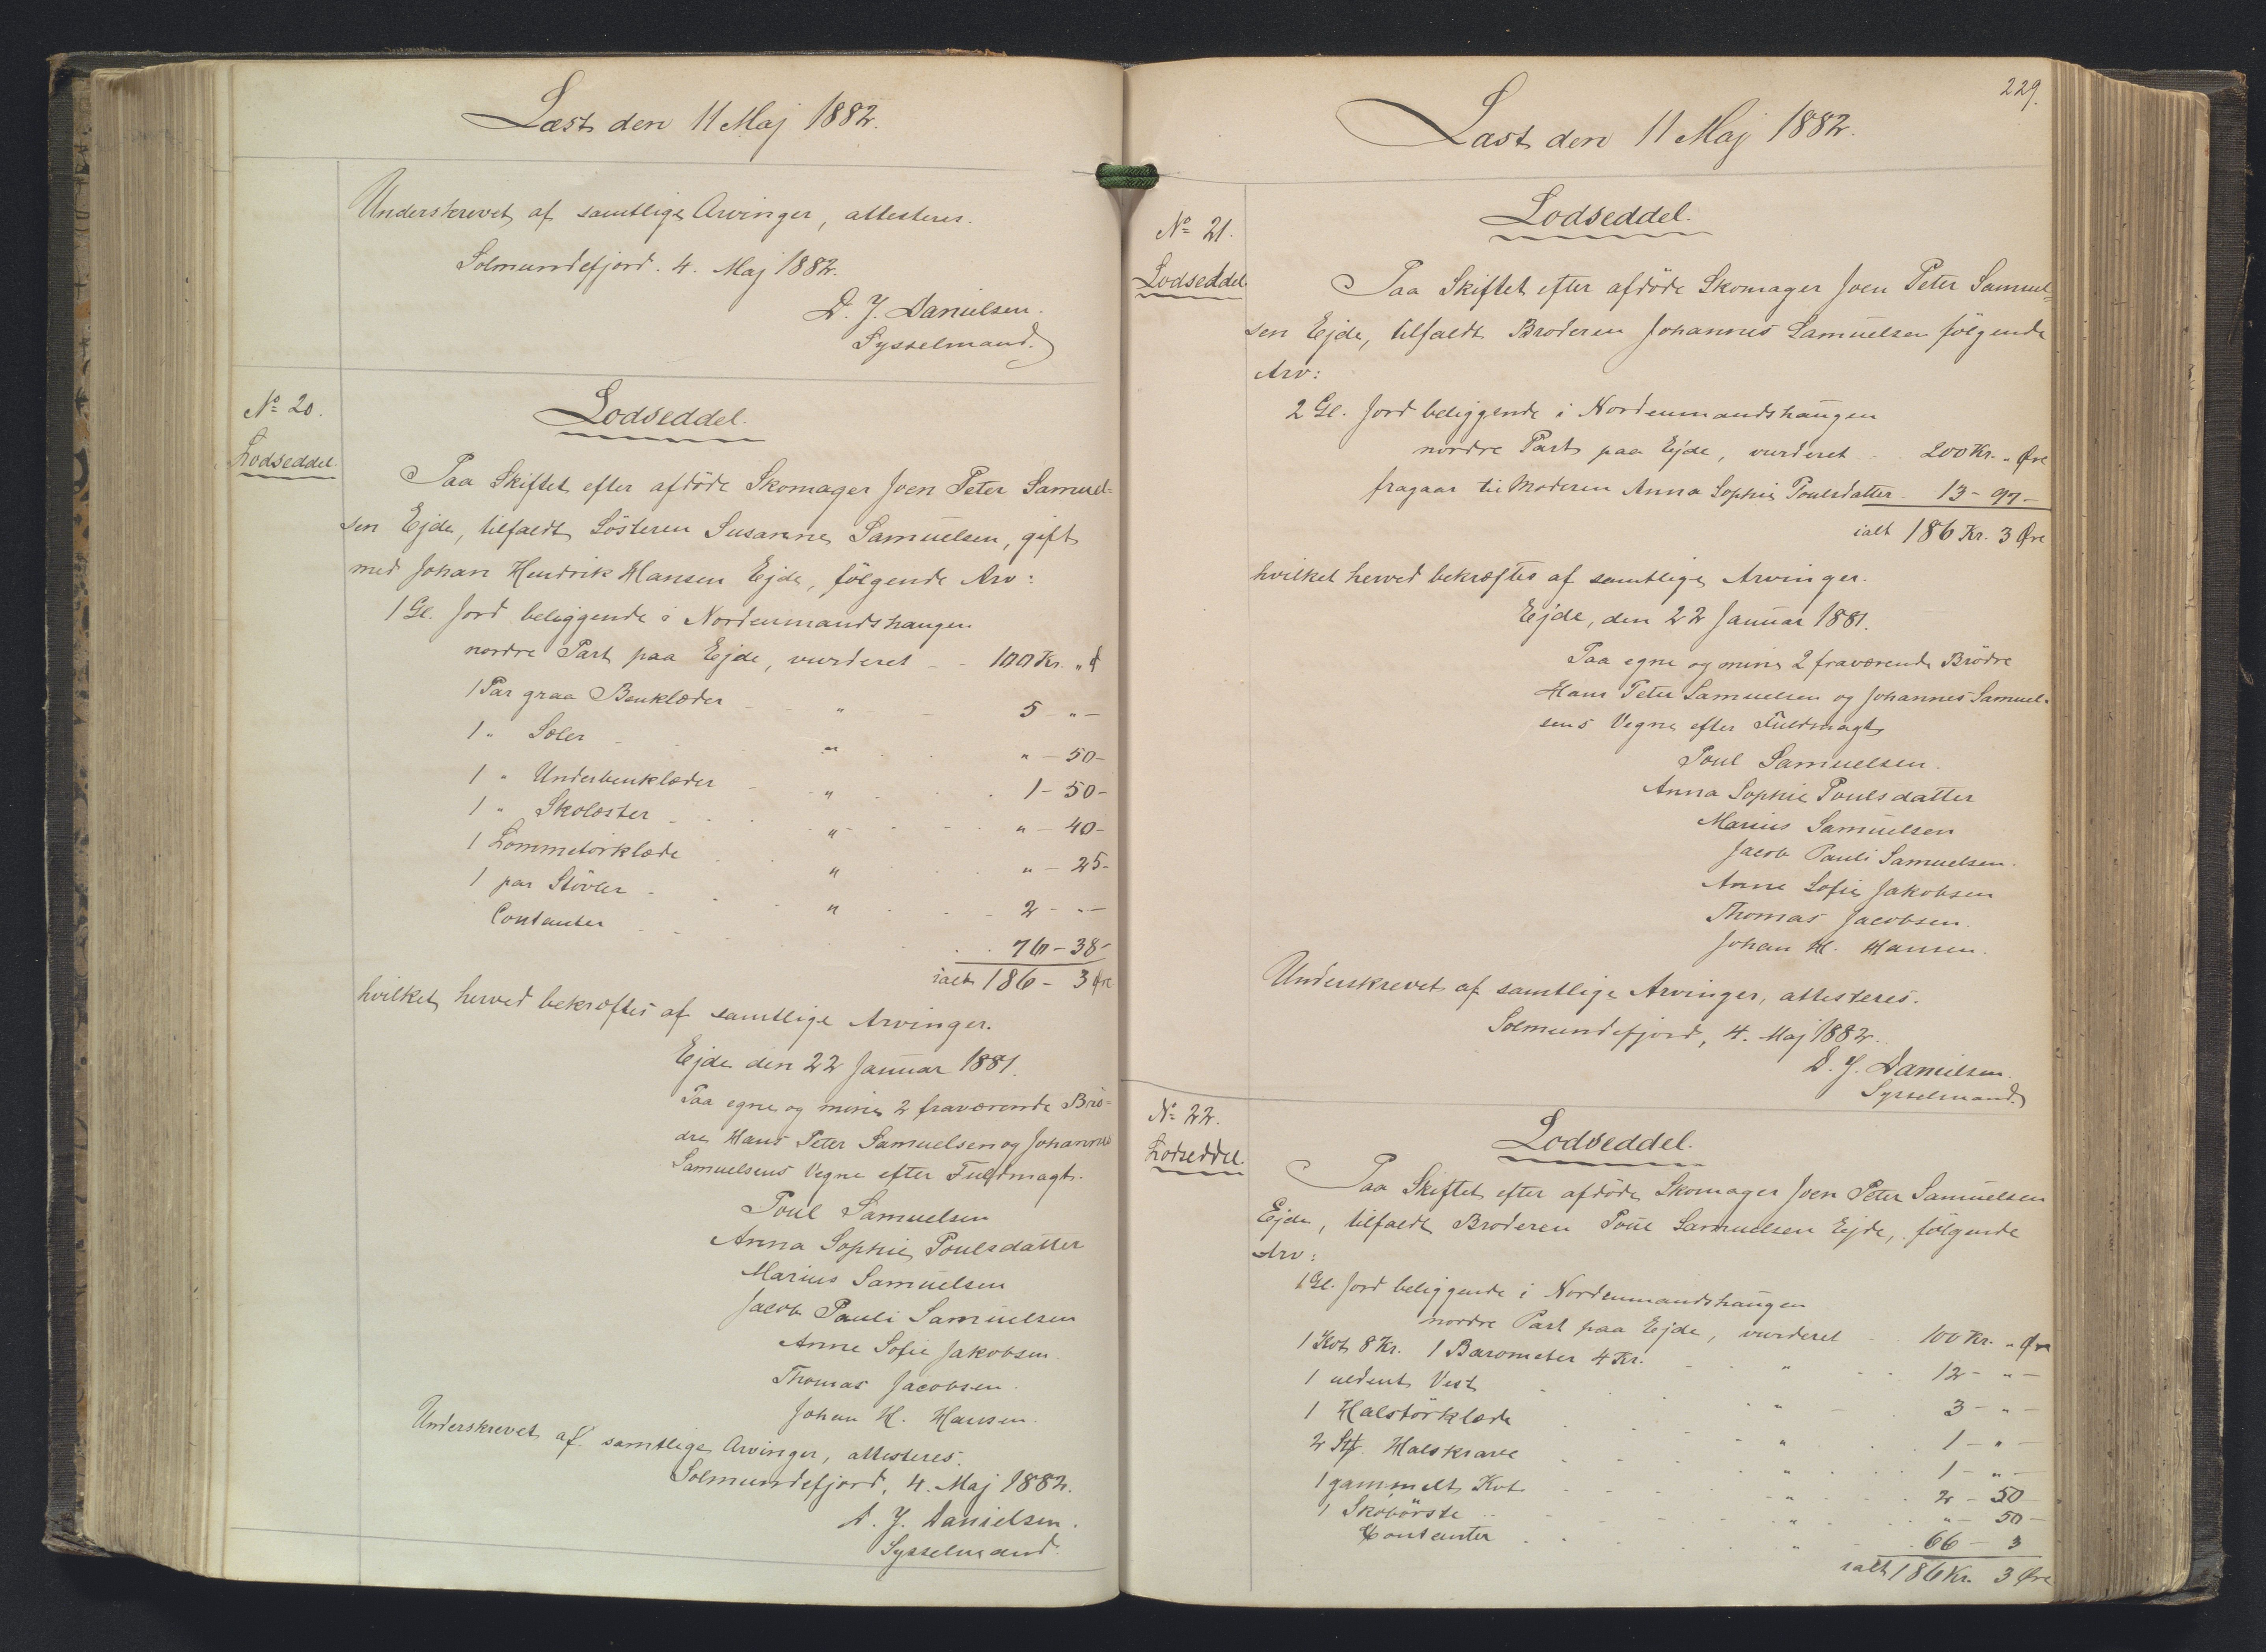 Læst den 11 Maj 1882.
Underskrevet af samtlige Arvinger, attesteres.
Solmundefjord. 4. Maj 1882.
D. J. Danielsen.
Sysselmand.
No 20.
Lodseddel.
Lodseddel.
Paa Skiftet efter afdöde Skomager Joen Peter Samuel-
sen Ejde, tilfaldt Sösteren Susanne Samuelsen, gift
med Johan Hendrik Hansen Ejde, fölgende Arv:
1 Gl. Jord beliggende i Nordenmandshaugen
nordre Part paa Ejde, vurderet - - 100 Kr. "
1 Par graa Benklæder - - " - 5 - " -
1 " Soler - " " - 50 -
1 " Underbenklæder - " 1 - 50 -
1 " Skolæster - " " - 40 -
1 Lommetörklæde " " - 25 -
1 par Stövler - " 2 - " -
Contanter 76 - 38 -
ialt 186 - 3 Øre
hvilket herved bekræftes af samtlige Arvinger.
Ejde den 22 Januar 1881.
Paa egne og mine 2 fraværende Brö-
dre Hans Peter Samuelsen og Johannes
Samuelsens Vegne efter Fuldmagt.
Poul Samuelsen
Anna Sophie Poulsdatter
Marius Samuelsen
Jacob Pauli Samuelsen
Anne Sofie Jakobsen
Thomas Jacobsen.
Johan H. Hansen.
Underskrevet af samtlige Arvinger, attesteres.
Solmundefjord, 4. Maj 1882.
D. J. Danielsen.
Sysselmand.
229.
Læst den 11 Maj 1882.
No 21.
Lodseddel.
Lodseddel.
Paa Skiftet efter afdöde Skomager Joen Peter Samuel-
sen Ejde, tilfaldt Broderen Johannes Samuelsen fölgende
Arv:
2 Gl. Jord beliggende i Nordenmandshaugen
nordre Part paa Ejde, vurderet - 200 Kr. " Øre
fragaar til Moderen Anna Sophie Poulsdatter - 13 - 97 -
ialt 186 Kr. 3 Øre
hvilket herved bekræftes af samtlige Arvinger.
Ejde, den 22 Januar 1881.
Paa egne og mine 2 fraværende Brödre
Hans Peter Samuelsen og Johannes Samuel-
sens Vegne efter Fuldmagt
Poul Samuelsen.
Anna Sophie Poulsdatter
Marius Samuelsen
Jacob Pauli Samuelsen.
Anne Sofie Jakobsen
Thomas Jacobsen.
Johan H. Hansen.
Underskrevet af samtlige Arvinger, attesteres.
Solmundefjord, 4. Maj 1882.
D. J. Danielsen.
Sysselmand.
No 22.
Lodseddel.
Lodseddel.
Paa Skiftet efter afdöde Skomager Joen Peter Samuelsen
Ejde, tilfaldt Broderen Poul Samuelsen Ejde, fölgende
Arv:
1 Gl. Jord beliggende i Nordenmandshaugen
nordre Part paa Ejde, vurderet - 100 Kr. " Øre
1 Kot 8 Kr. 1 Barometer 4 Kr. - " - 12 - " -
1 uldent Vest - " - 3 - " -
1 Halstörklæde - " 1 - " -
2 Stk. Halskrave - " 1 - " -
1 gammelt Kot - " 2 - 50
1 Skobörste - " " - 50 -
Contanter - " 66 - 3
ialt 186 Kr. 3 Øre